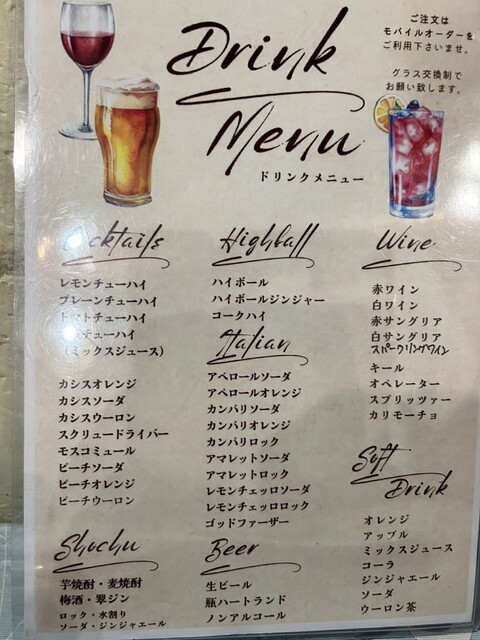 Drink
Menu
ドリンクメニュー
ご注文は
モバイルオーダーを
ご利用下さいませ。
グラス交換制で
お願い致します。
Cocktails
レモンチューハイ
プレーンチューハイ
トマトチューハイ
チューハイ
(ミックスジュース)
カシスオレンジ
カシスソーダ
カシスウーロン
スクリュードライバー
モスコミュール
ピーチソーダ
ピーチオレンジ
ピーチウーロン
Shochu
芋焼酎・麦焼酎
梅酒・翠ジン
ロック・水割り
ソーダ・ジンジャエール
Highball
ハイボール
ハイボールジンジャー
コークハイ
Italian
アペロールソーダ
アペロールオレンジ
カンパリソーダ
カンパリオレンジ
カンパリロック
アマレットソーダ
アマレットロック
レモンチェッロソーダ
レモンチェッロロック
ゴッドファーザー
Beer
生ビール
瓶ハートランド
ノンアルコール
Wine
赤ワイン
白ワイン
赤サングリア
白サングリア
スパークリングワイン
キール
オペレーター
スプリッツァー
カリモーチョ
Soft
Drink
オレンジ
アップル
ミックスジュース
コーラ
ジンジャエール
ソーダ
ウーロン茶